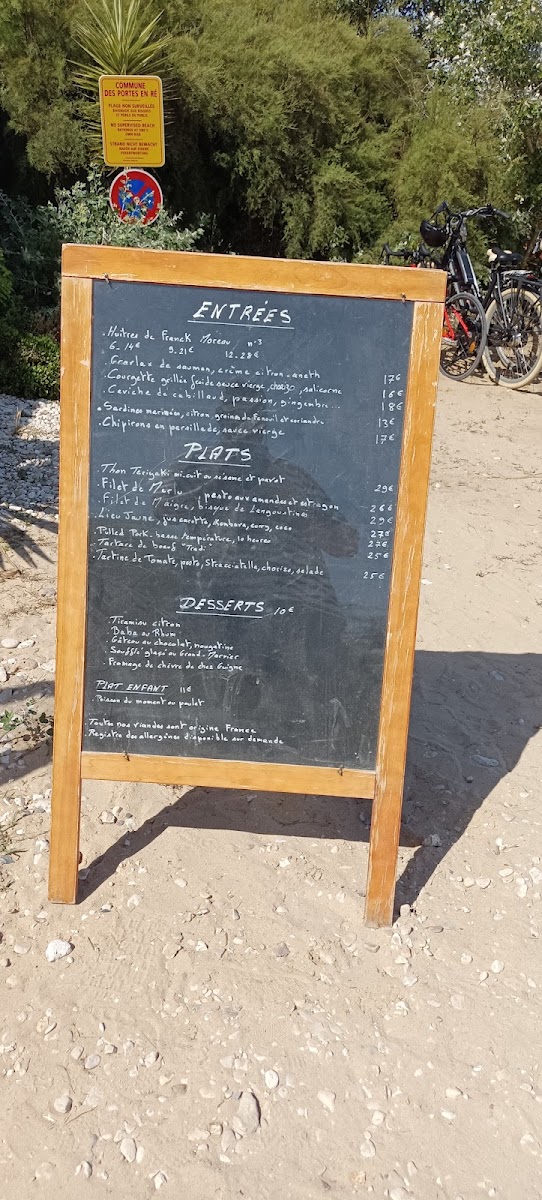 COMMUNE
DES PORTES EN RÉ
PLAGE NON SURVEILLÉE
NO SUPERVISED BEACH
STRAND NICHT BEWACHT
ENTRÉES
. Huîtres de Franck Moreau n°3
6_ 14€ 9_21€ 12_28€
. Gravlax de saumon, crème citron_aneth 17€
. Courgette grillée feide sauce vierge, chorizo, salicorne 16€
. Ceviche de cabillaud, passion, gingembre... 18€
. Sardines marinées, citron, graines de fenouil et coriandre 13€
. Chipirons en persillade, sauce vierge 17€
PLATS
. Thon Teriyaki mi-cuit au sésame et pavot 29€
. Filet de Merlu, pesto aux amandes et estragon 26€
. Filet de Maigre, bisque de Langoustines 29€
. Lieu Jaune, jus carotte, Kombava, curry, coco 27€
. Pulled Pork. basse température, 10 heures 27€
. Tartare de boeuf "Tradi" 25€
. Tartine de Tomate, pesto, Stracciatella, chorizo, salade 25€
DESSERTS 10€
. Tiramisu citron
. Baba au Rhum
. Gâteau au chocolat, nougatine
. Soufflé glacé au Grand-Marnier
. Fromage de chèvre de chez Guigne
PLAT ENFANT 11€
. Poisson du moment ou poulet
. Toutes nos viandes sont origine France
. Registre des allergènes disponible sur demande